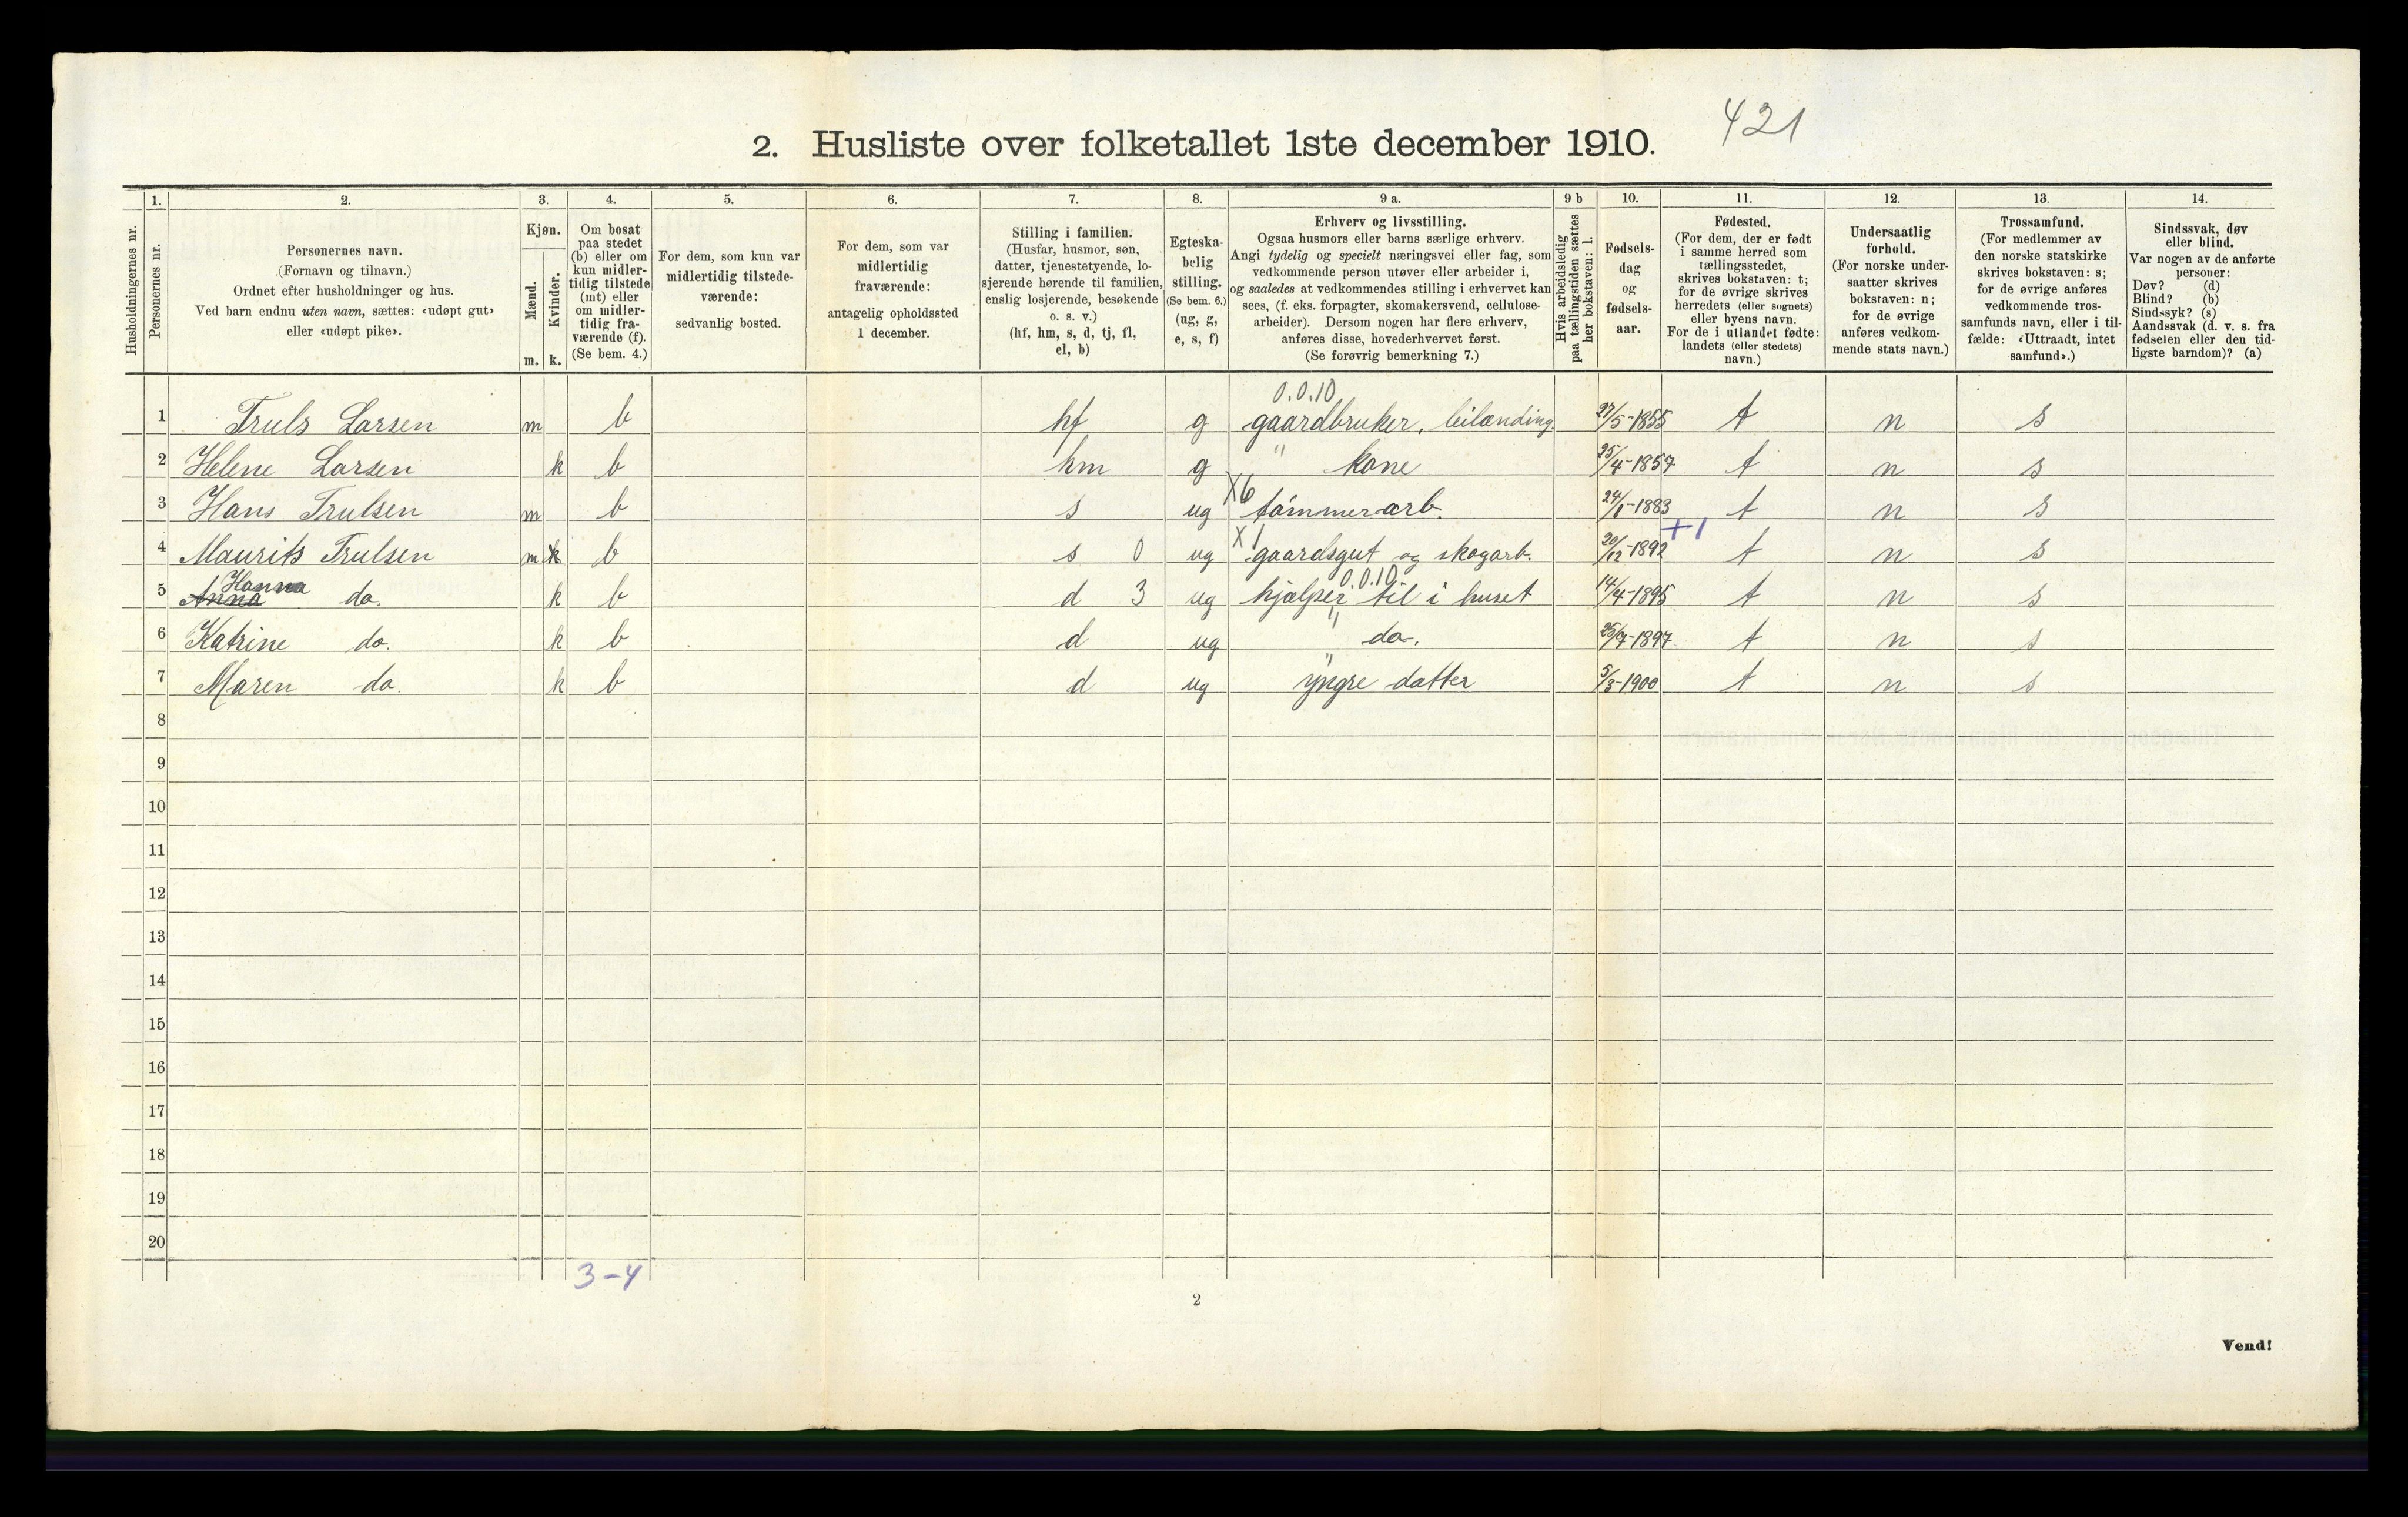 421
2. Husliste over folketallet 1ste december 1910.
Husholdningernes nr.
1.
Personernes nr.
2.
Personernes navn.
(Fornavn og tilnavn.)
Ordnet efter husholdninger og hus.
Ved barn endnu uten navn, sættes: «udøpt gut»
eller «udøpt pike».
3.
Kjøn.
Mænd.
Kvinder.
m. k.
4.
Om bosat
paa stedet
(b) eller om
kun midler-
tidig tilstede
(mt) eller
om midler-
tidig fra-
værende (f).
(Se bem. 4.)
5.
For dem, som kun var
midlertidig tilstede-
værende:
sedvanlig bosted.
6.
For dem, som var
midlertidig
fraværende:
antagelig opholdssted
1 december.
7.
Stilling i familien.
(Husfar, husmor, søn,
datter, tjenestetyende, lo-
sjerende hørende til familien,
enslig losjerende, besøkende
o. s. v.)
(hf, hm, s, d, tj, fl,
el, b)
8.
Egteska-
belig
stilling.
(Se bem. 6.)
(ug, g,
e, s, f)
9 a.
Erhverv og livsstilling.
Ogsaa husmors eller barns særlige erhverv.
Angi tydelig og specielt næringsvei eller fag, som
vedkommende person utøver eller arbeider i,
og saaledes at vedkommendes stilling i erhvervet kan
sees, (f. eks. forpagter, skomakersvend, cellulose-
arbeider). Dersom nogen har flere erhverv,
anføres disse, hovederhvervet først.
(Se forøvrig bemerkning 7.)
9 b
Hvis arbeidsledig
paa tællingstiden sættes
her bokstaven: l.
10.
Fødsels-
dag
og
fødsels-
aar.
11.
Fødested.
(For dem, der er født
i samme herred som
tællingsstedet,
skrives bokstaven: t;
for de øvrige skrives
herredets (eller sognets)
eller byens navn.
For de i utlandet fødte:
landets (eller stedets)
navn.)
12.
Undersaatlig
forhold.
(For norske under-
saatter skrives
bokstaven: n;
for de øvrige
anføres vedkom-
mende stats navn.)
13.
Trossamfund.
(For medlemmer av
den norske statskirke
skrives bokstaven: s;
for de øvrige anføres
vedkommende tros-
samfunds navn, eller i til-
fælde: «Uttraadt, intet
samfund».)
14.
Sindssvak, døv
eller blind.
Var nogen av de anførte
personer:
Døv? (d)
Blind? (b)
Sindssyk? (s)
Aandssvak (d. v. s. fra
fødselen eller den tid-
ligste barndom)? (a)
0.0.10
1 Truls Larsen m b hf g gaardbruker, leilænding. 27/5-1855 t n s
2 Helene Larsen k b hm g " kone 25/4-1857 t n s
X6
3 Hans Trulsen m b s ug tömmerarb. 24/1-1883 t n s
X1 +1
4 Maurits Trulsen m k b s 0 ug gaardsgut og skogarb. 20/12-1892 t n s
Hanna 0.0.10
5 Anna do. k b d 3 ug hjælper til i huset 14/4-1895 t n s
6 Katrine do. k b d ug " do. 25/7-1897 t n s
7 Maren do. k b d ug " yngre datter 5/3-1900 t n s
8
9
10
11
12
13
14
15
16
17
18
19
20
3-4
2
Vend!